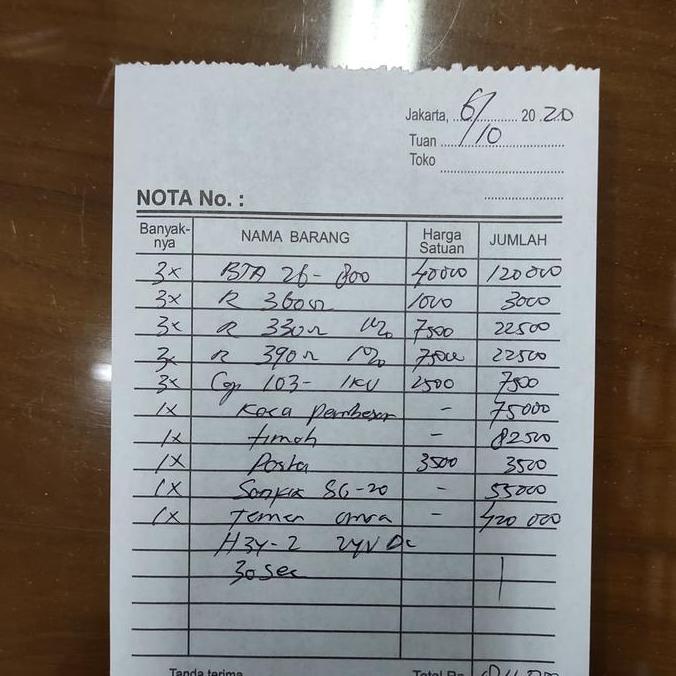 Jakarta, 6/10 20.20
Tuan
Toko
NOTA No. :
Banyak-nya NAMA BARANG Harga Satuan JUMLAH
3x BTA 26- 800 40000 120000
3x R 360Ω 1000 3000
3x R 330Ω 1% 7500 22500
3x R 390Ω 1% 7500 22500
3x Cap 103- 1KV 2500 7500
1x Kaca pembesar - 75000
1x timah - 82500
1x Pasta 3500 3500
1x SG-20 - 55000
1x Timer - 420 000
H3Y-2 24V DC
30 Sec
Tanda terima Total Rp